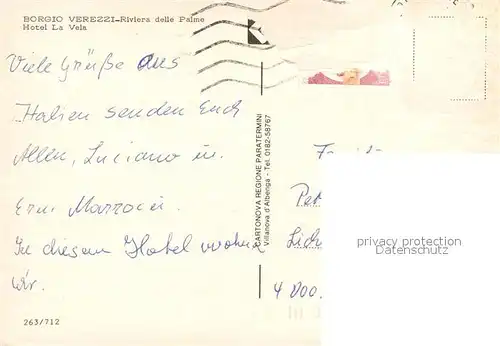 BORGIO VEREZZI-Riviera delle Palme
Hotel La Vela
Viele Grüße aus
Italien senden Euch
Allen, Luciano u.
In diesem Hotel wohnen
wir.
263/712
CARTONOVA REGIONE PARATERMINI
Villanova d'Albenga - Tel. 0182-58767
4000
privacy protection
Datenschutz